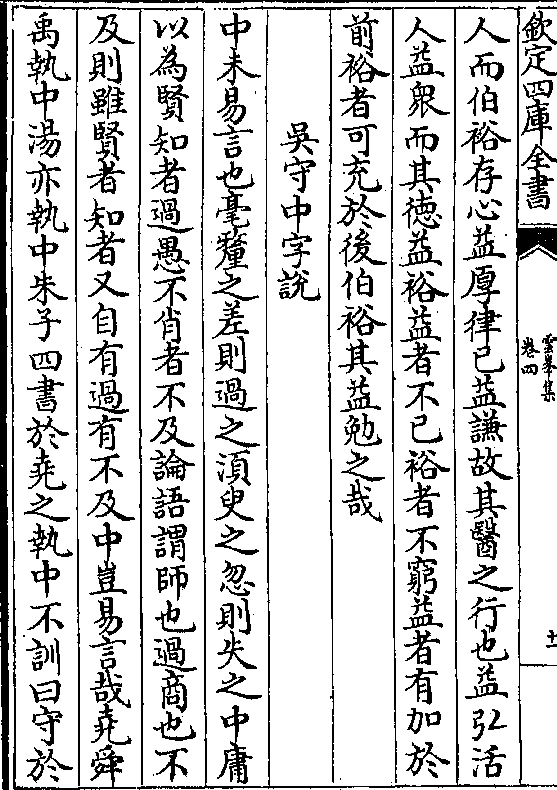 欽定四庫全書
雲峯集
卷四
十一
人而伯裕存心益厚律已益謙故其醫之行也益弘活
人益衆而其徳益裕益者不已裕者不窮益者有加於
前裕者可充於後伯裕其益勉之哉
吳守中字説
中未易言也毫釐之差則過之湏臾之忽則失之中庸
以為賢知者過愚不肖者不及論語謂師也過商也不
及則雖賢者知者又自有過有不及中豈易言哉堯舜
禹執中湯亦執中朱子四書於堯之執中不訓曰守於